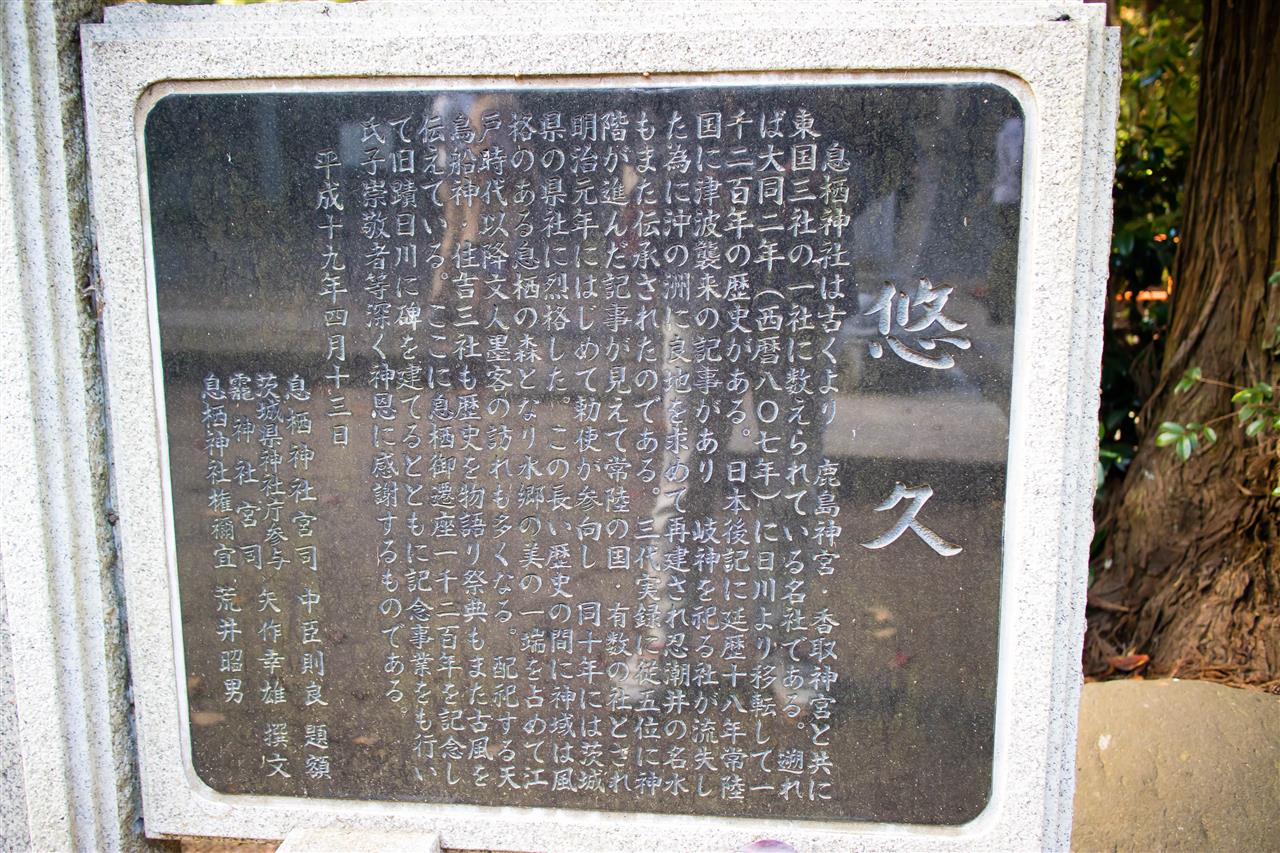 悠久
息栖神社は古くより 鹿島神宮・香取神宮と共に
東国三社の一社に数えられている名社である。遡れ
ば大同二年（西暦八〇七年）に日川より移転して一
千二百年の歴史がある。日本後記に延歴十八年常陸
国に津波襲来の記事があり 岐神を祀る社が流失し
た為に沖の洲に良地を求めて再建され忍潮井の名水
もまた伝承されたのである。三代実録に従五位に神
階が進んだ記事が見えて常陸の国・有数の社とされ
明治元年にはじめて勅使が参向し 同十年には茨城
県の県社に烈格した。この長い歴史の間に神域は風
格のある息栖の森となり水郷の美の一端を占めて江
戸時代以降文人墨客の訪れも多くなる。配祀する天
鳥船神・住吉三社も歴史を物語り祭典もまた古風を
伝えている。ここに息栖御遷座一千二百年を記念し
て旧蹟日川に碑を建てるとともに記念事業をも行い
氏子崇敬者等深く神恩に感謝するものである。
平成十九年四月十三日
息栖神社宮司 中臣則良 題額
茨城県神社庁参与 矢作幸雄 撰文
龗神社宮司
息栖神社権禰宜 荒井昭男